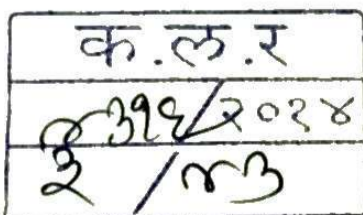 क.ल.र
३१६/२०२४
/४३